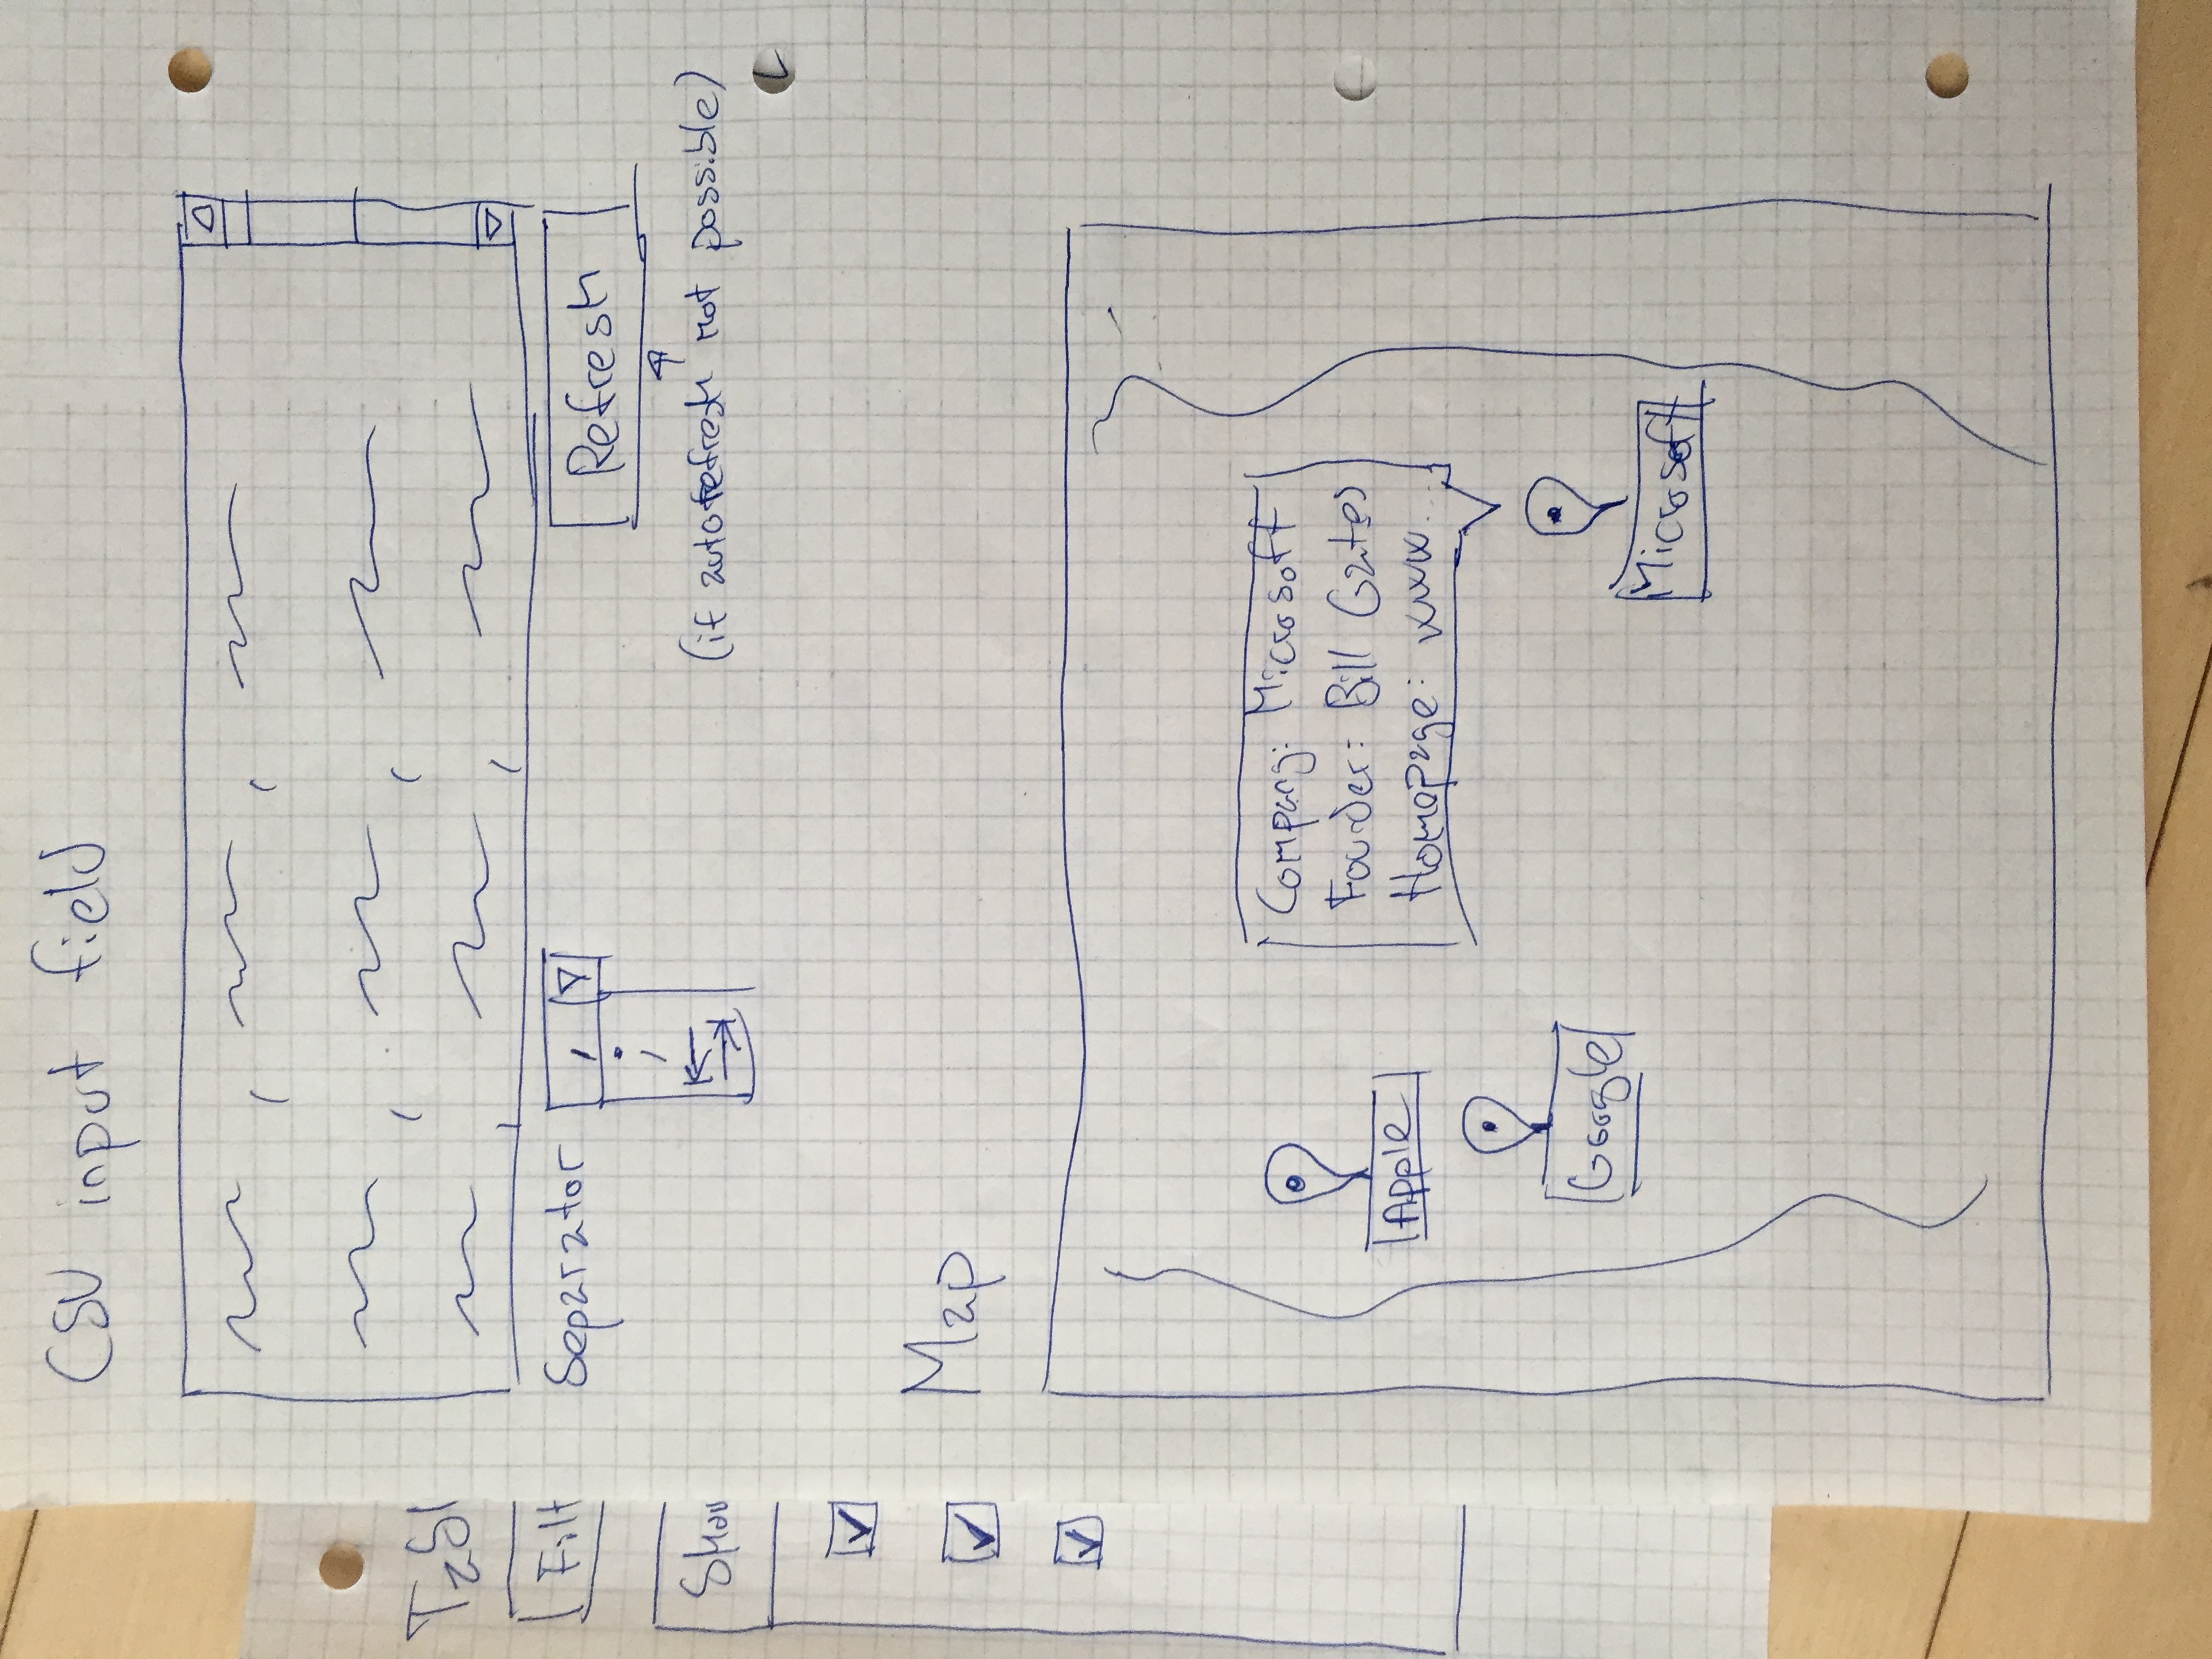 CSV input field
, ,
, ,
, ,
Separator , Refresh
;
(if autorefresh not possible)
Map
Company: Microsoft
Founder: Bill Gates
Homepage: www...
Apple
Google
Microsoft
Tabl
Filt
Show